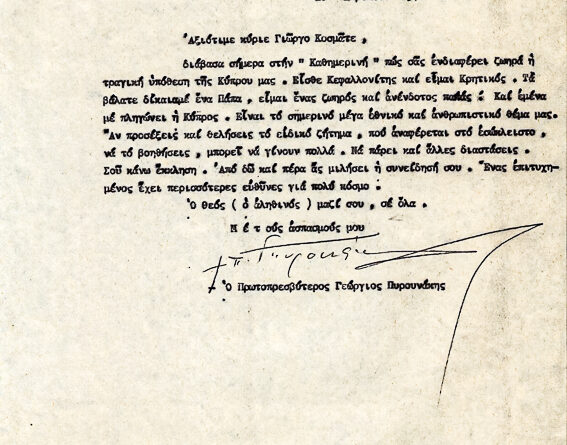 Ἀξιότιμε κύριε Γιῶργο Κοσμᾶτε ,
διάβασα σήμερα στήν " Καθημερινή " πώς σᾶς ἐνδιαφέρει ζωηρά ἡ
τραγική ὑπόθεση τῆς Κύπρου μας . Εἶσθε Κεφαλλονίτης καί εἶμαι Κρητικός . Τά
βάλατε δίκαιαμέ ἕνα Πάπα , εἶμαι ἕνας ζωηρός καί ἀνένδοτος παπάς : Καί ἐμένα
μέ πληγώνει ἡ Κύπρος . Εἶναι τό σημερινό μέγα ἐθνικό καί ἀνθρωπιστικό θέμα μας.
Ἄν προσέξεις καί θελήσεις τό εἰδικό ζήτημα , πού ἀναφέρεται στό ἐσώκλειστο
νά τό βοηθήσεις , μπορεῖ νά γίνουν πολλά . Νά πάρει καί ἄλλες διαστάσεις .
Σοῦ κάνω ἔκκληση . Ἀπό δῶ καί πέρα ἄς μιλήσει ἡ συνείδησή σου . Ἕνας ἐπιτυχη-
μένος ἔχει περισσότερες εὐθῦνες γιά πολύ κόσμο :
Ὁ θεός ( ὁ ἀληθινός ) μαζί σου , σέ ὅλα .
Μ έ τ ούς ἀσπασμούς μου
Ὁ Πρωτοπρεσβύτερος Γεώργιος Πυρουνάκης